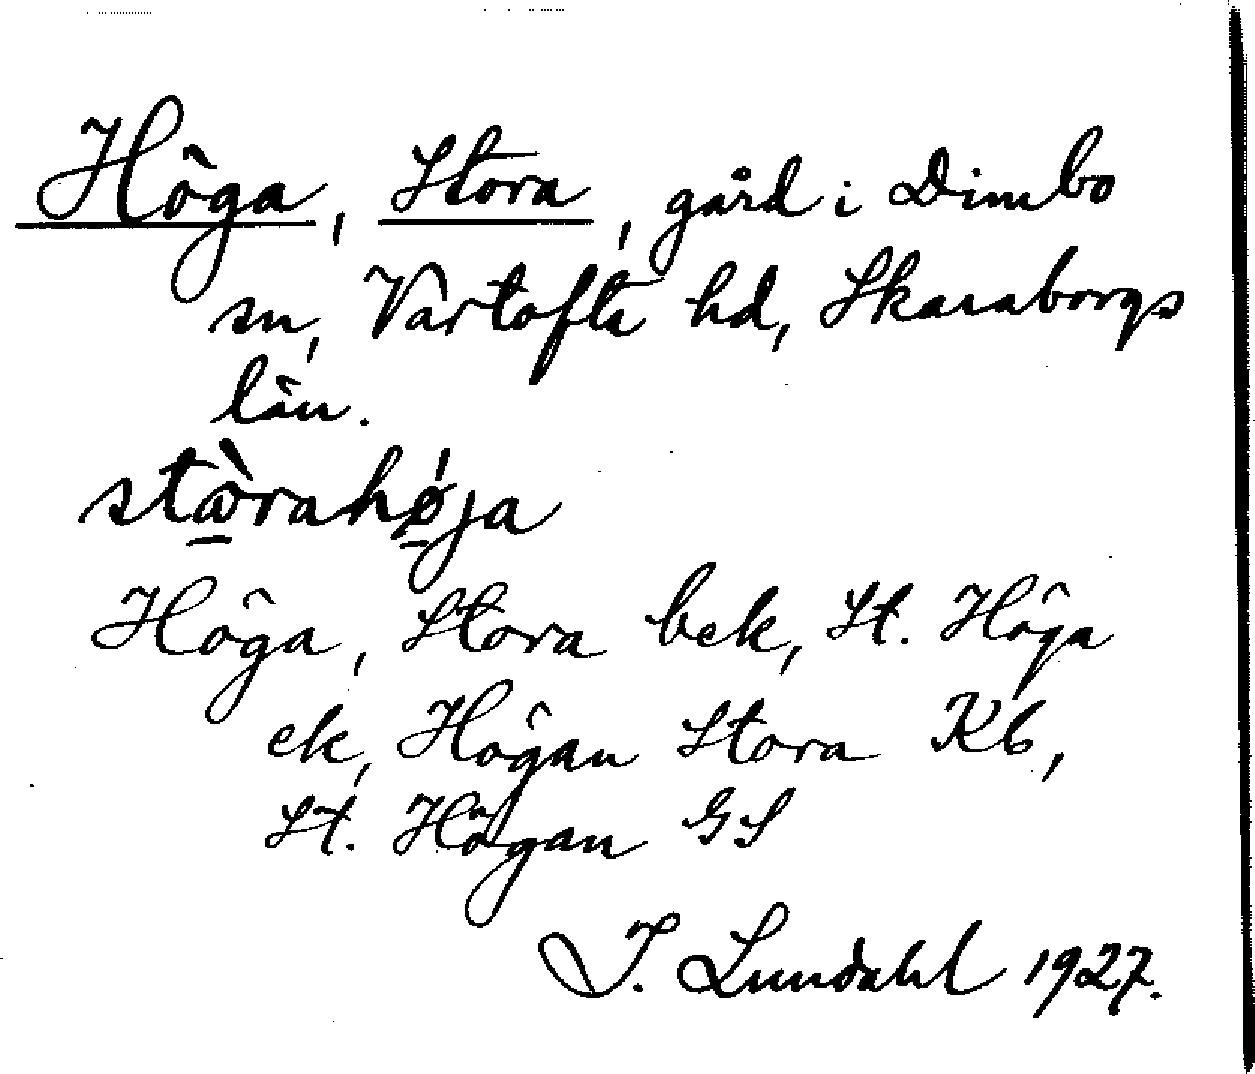 Höga, Stora, gård i Dimbo
sn, Vartofta hd, Skaraborgs
län.
stòrahǿja
Höga, Stora bek, St. Höga
ek, Högan Stora Kb,
St. Högan GS
I. Lundahl 1927.